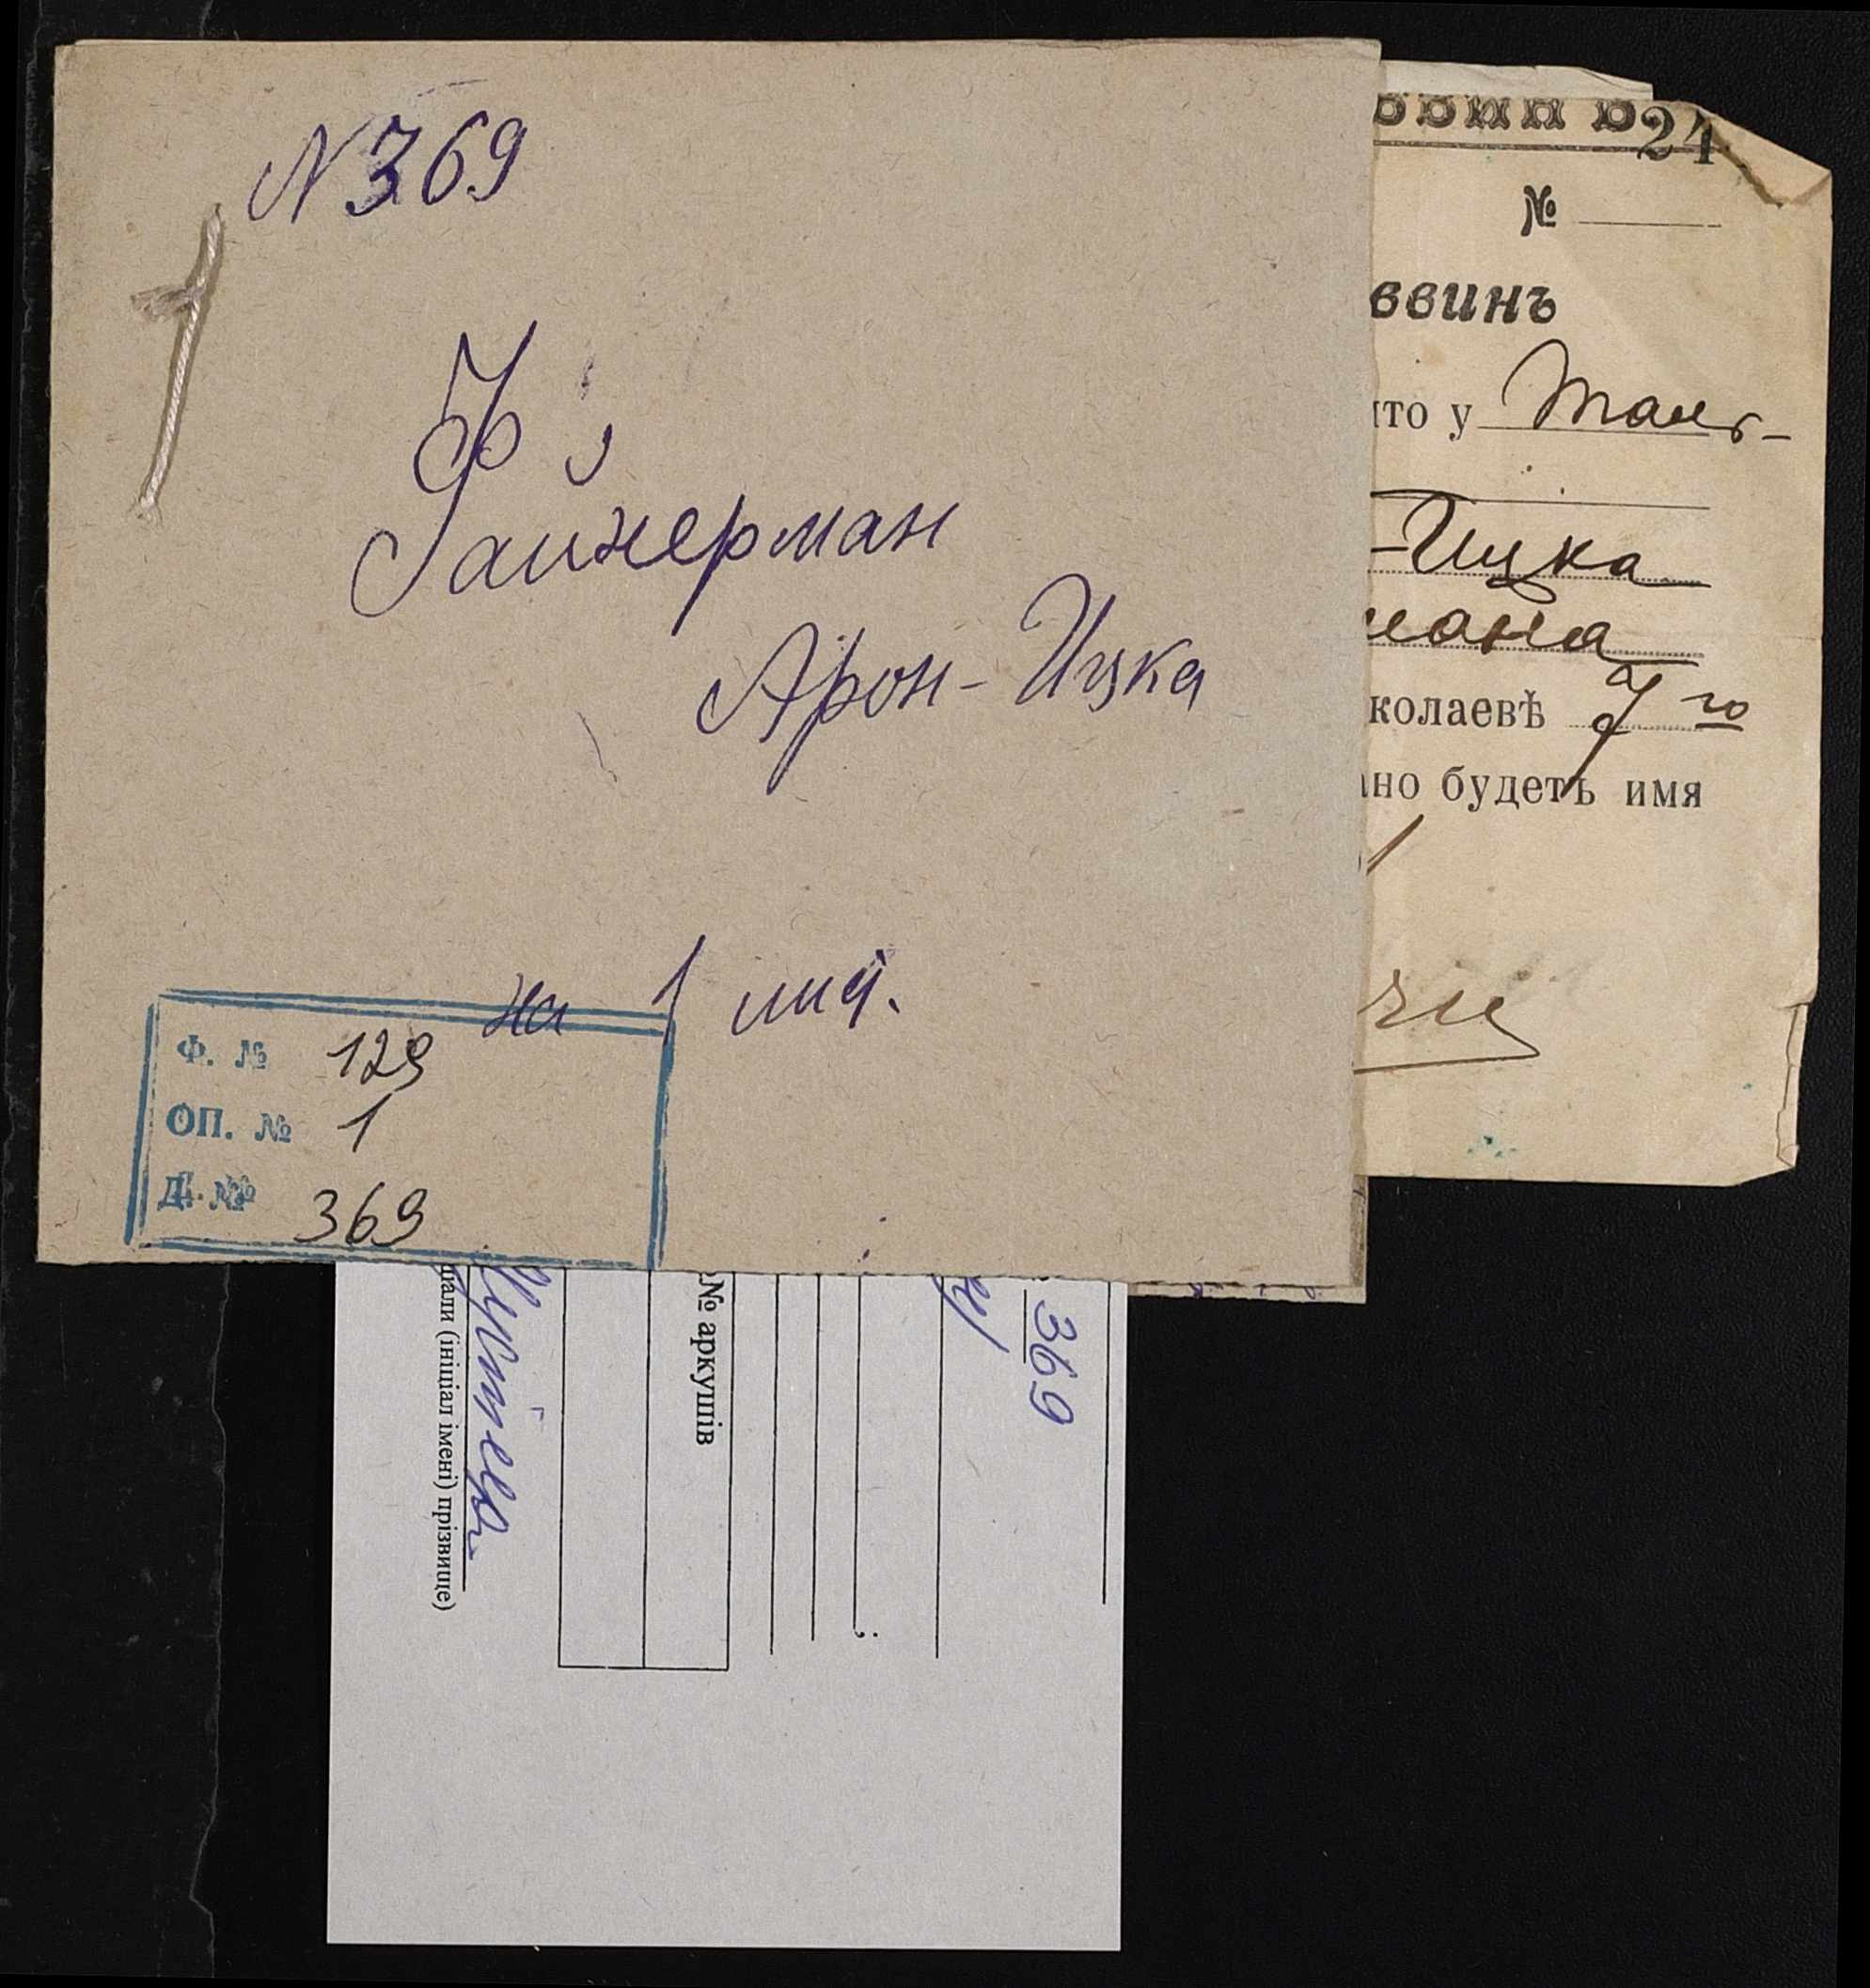 № 369
Ф
Файнерман
Арон-Ицка
на 1 лист.
Ф. № 129
ОП. № 1
Д. № 369
ввинъ
24
№
ввинъ
что у
-Ицка
мана
колаевѣ 7 го
ано будетъ имя
369
№ аркушів
(ініціал імені) прізвище)